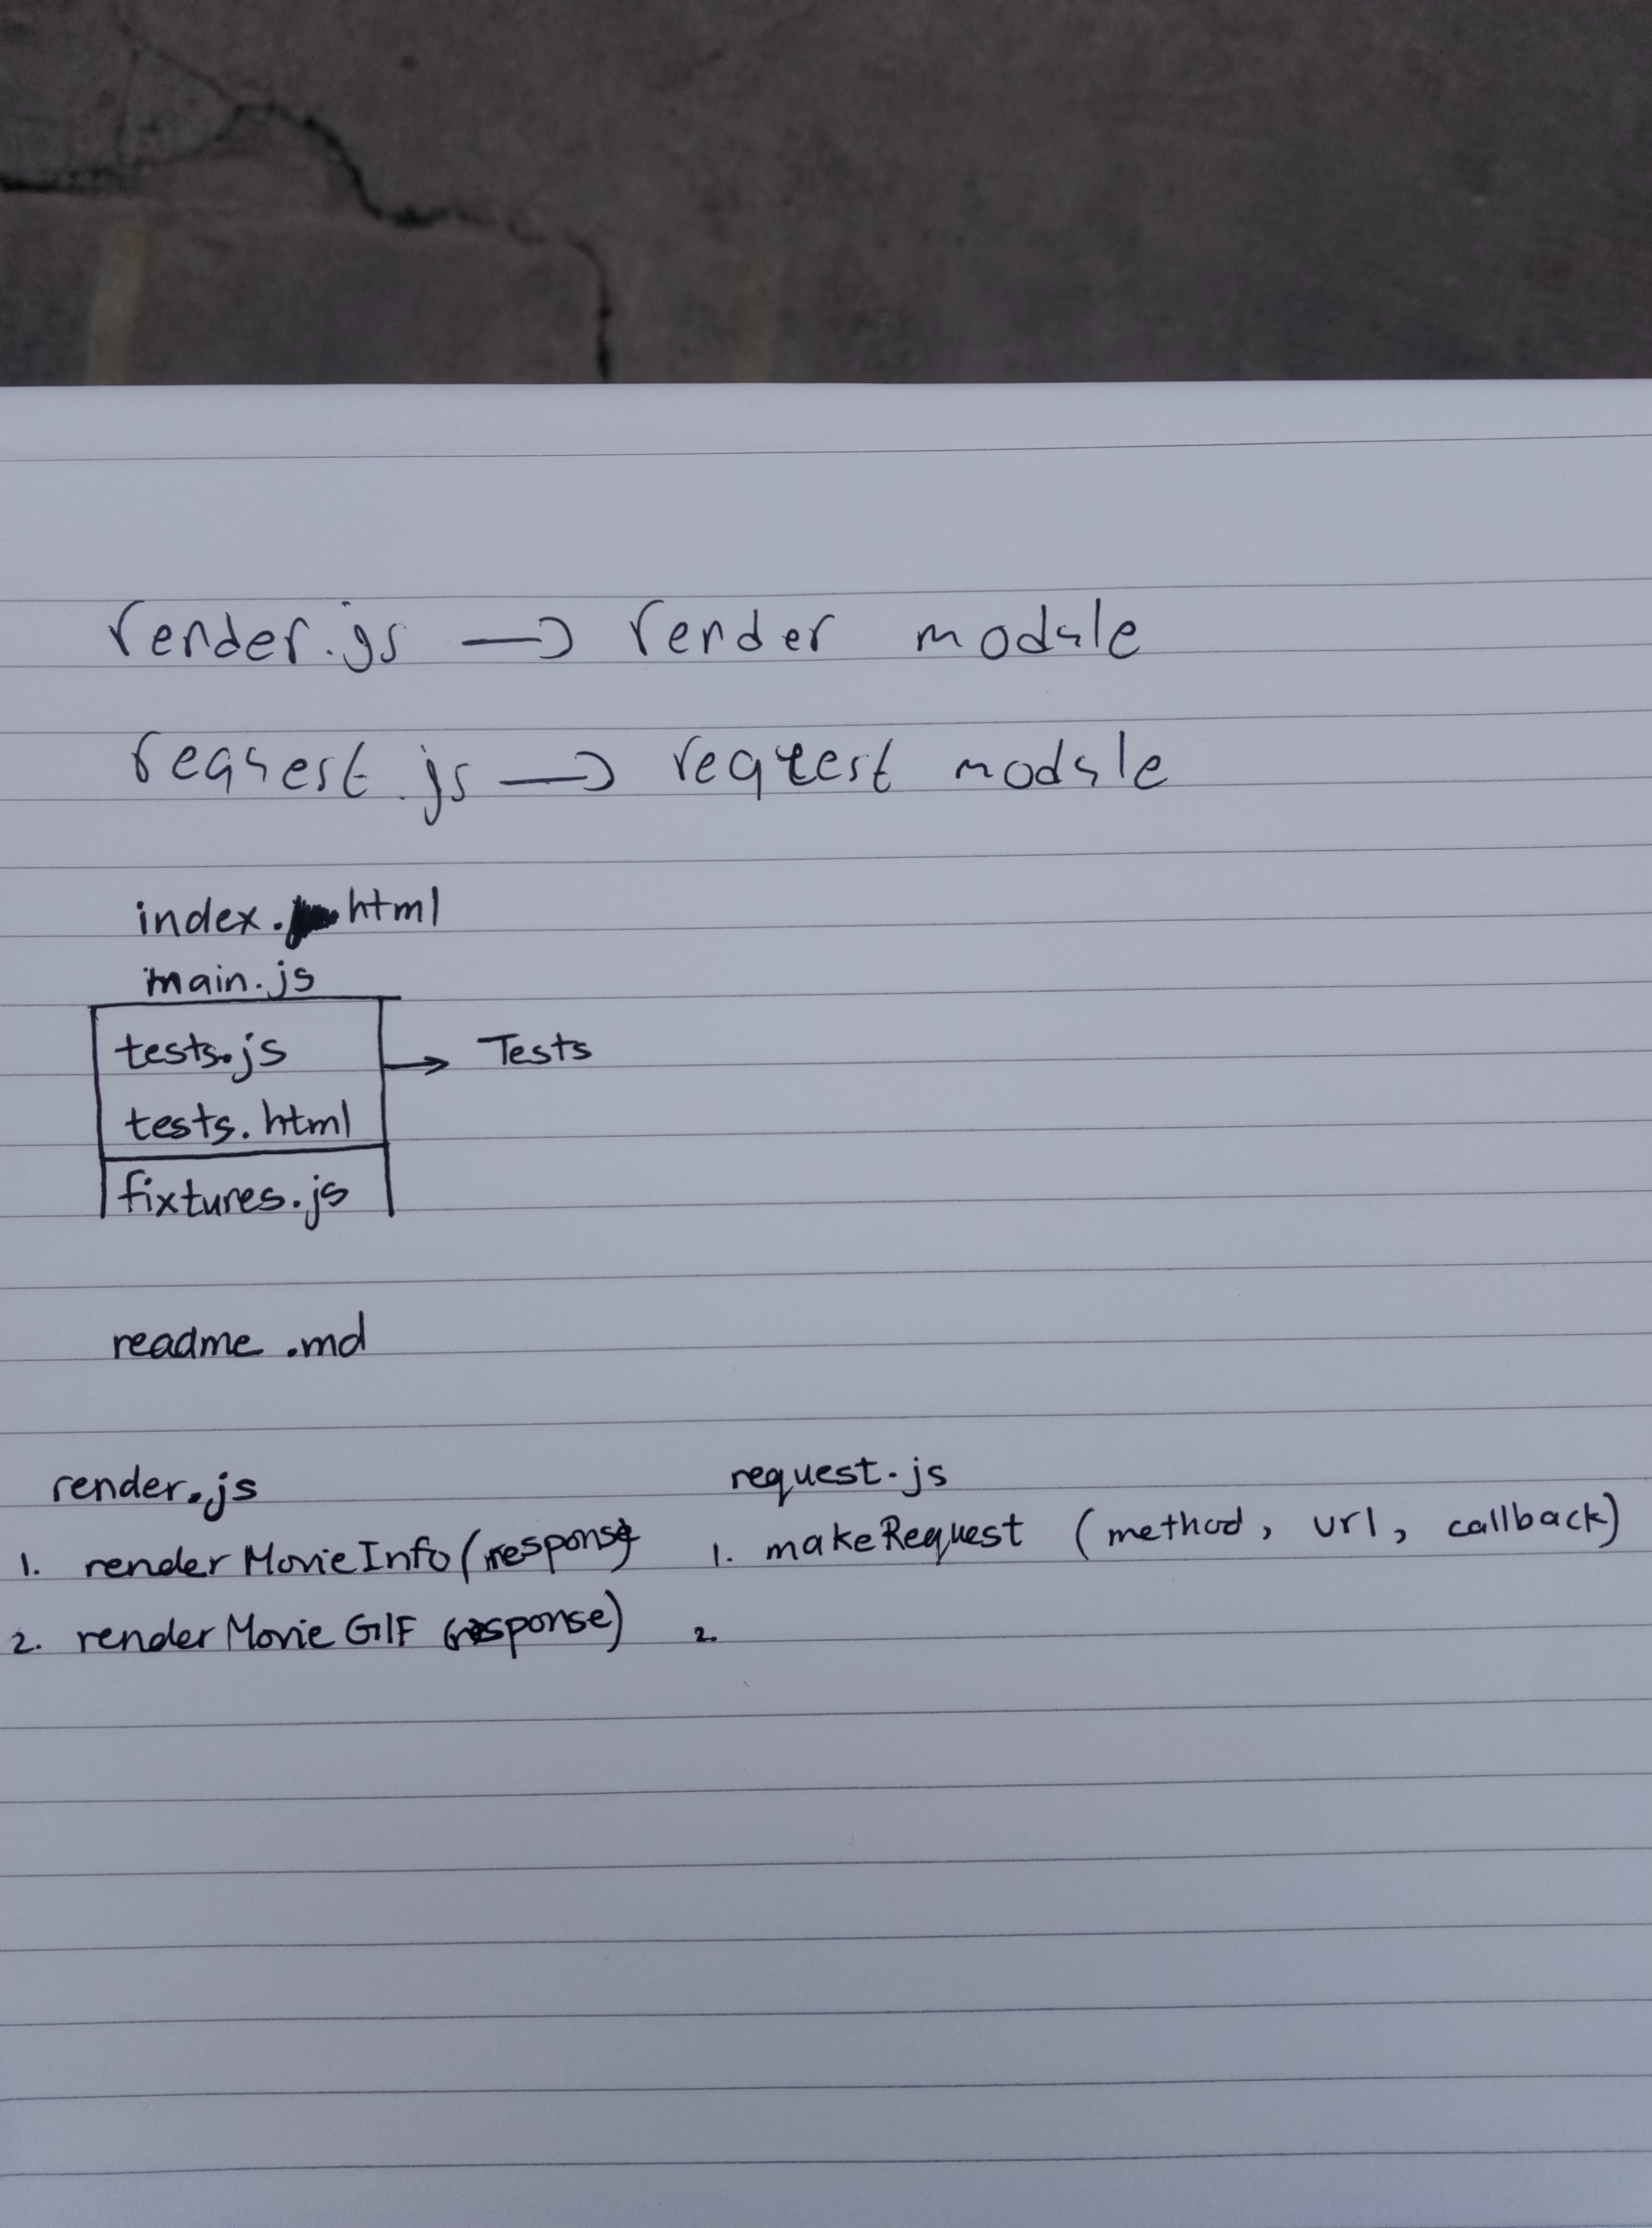 render.js → render module
request.js → request module
index.html
main.js
tests.js → Tests
tests.html
fixtures.js
readme.md
render.js
1. renderMovieInfo(response)
2. renderMovieGIF (response)
request.js
1. makeRequest (method, url, callback)
2.